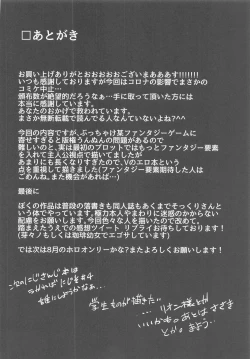 □あとがき
お買い上げありがとおおおおおございまああああす!!!!!!
いつも感謝しておりますが今回はコロナの影響でまさかの
コミケ中止…
頒布数が絶望的だろうなぁ…手に取って頂いた方には
本当に感謝しています。
あなたのおかげで救われています。
まさか無断転載で読んでる人なんていないよね?^^
今回の内容ですが、ぶっちゃけ某ファンタジーゲームに
寄せすぎると版権うんぬんの問題があるので
難しいなと。実は最初のプロットではもっとファンタジー要素
を入れて主人公視点で描いてましたが
あまりにも長くなりすぎたので、Vのエロ本という
点を重視して描きました(ファンタジー要素期待した人は
ごめんね。また機会があれば…)
最後に
ぼくの作品は普段の落書きも同人誌もあくまでそっくりさんと
いう体でやっています。極力本人やまわりに迷惑のかからない
配慮をお願いします!今回色々な人を描いたので、それも
踏まえたうえでの感想ツイート リプライお待ちしております!
(芽々ノもしくは珈琲幼女でエゴサしています)
では次は8月のホロオンリーかな?またよろしくお願いします!
次のにじさんじ本は
姫にしようかなぁ…
学生ものが描きたい…